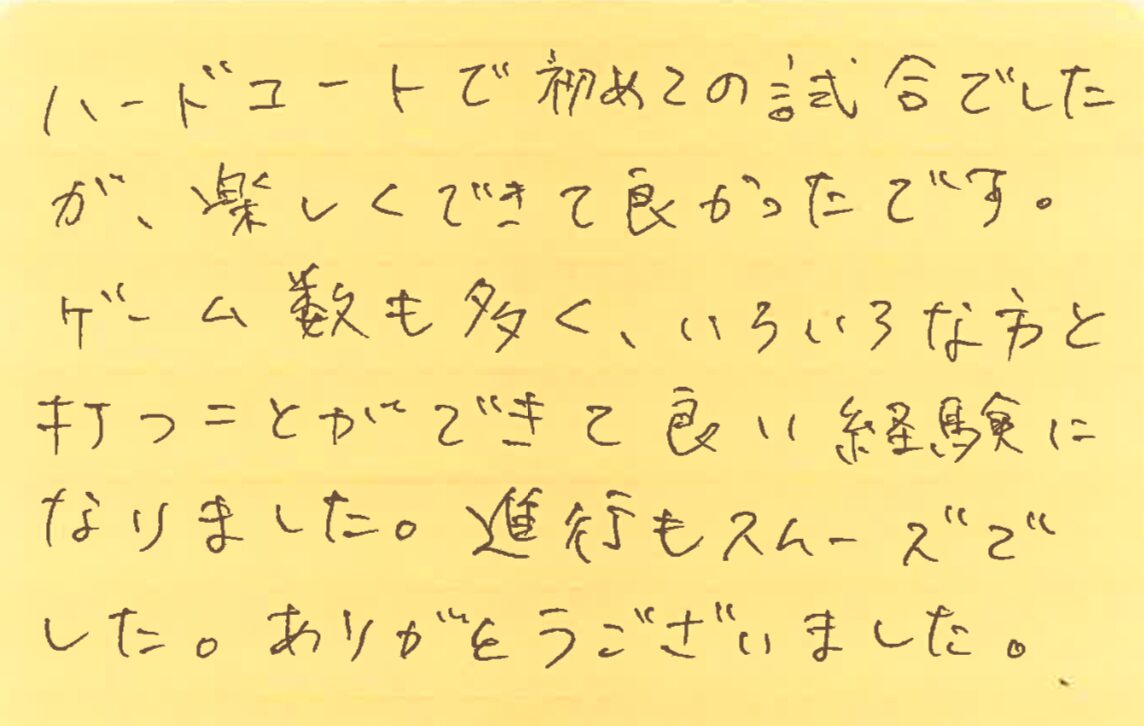 ハードコートで初めての試合でした
が、楽しくできて良かったです。
ゲーム数も多く、いろいろな方と
打つことができて良い経験に
なりました。進行もスムーズで
した。ありがとうございました。